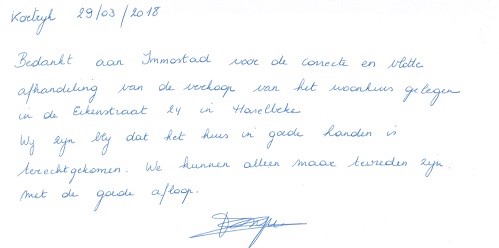 Kortryk 29/03/2018
Bedankt aan Immostad voor de correcte en vlotte
afhandeling van de verkoop van het woonhuis gelegen
in de Eikenstraat 24 in Harelbeke
Wy zyn bly dat het huis in goede handen is
terechtgekomen. We kunnen alleen maar tevreden zyn
met de goede afloop.